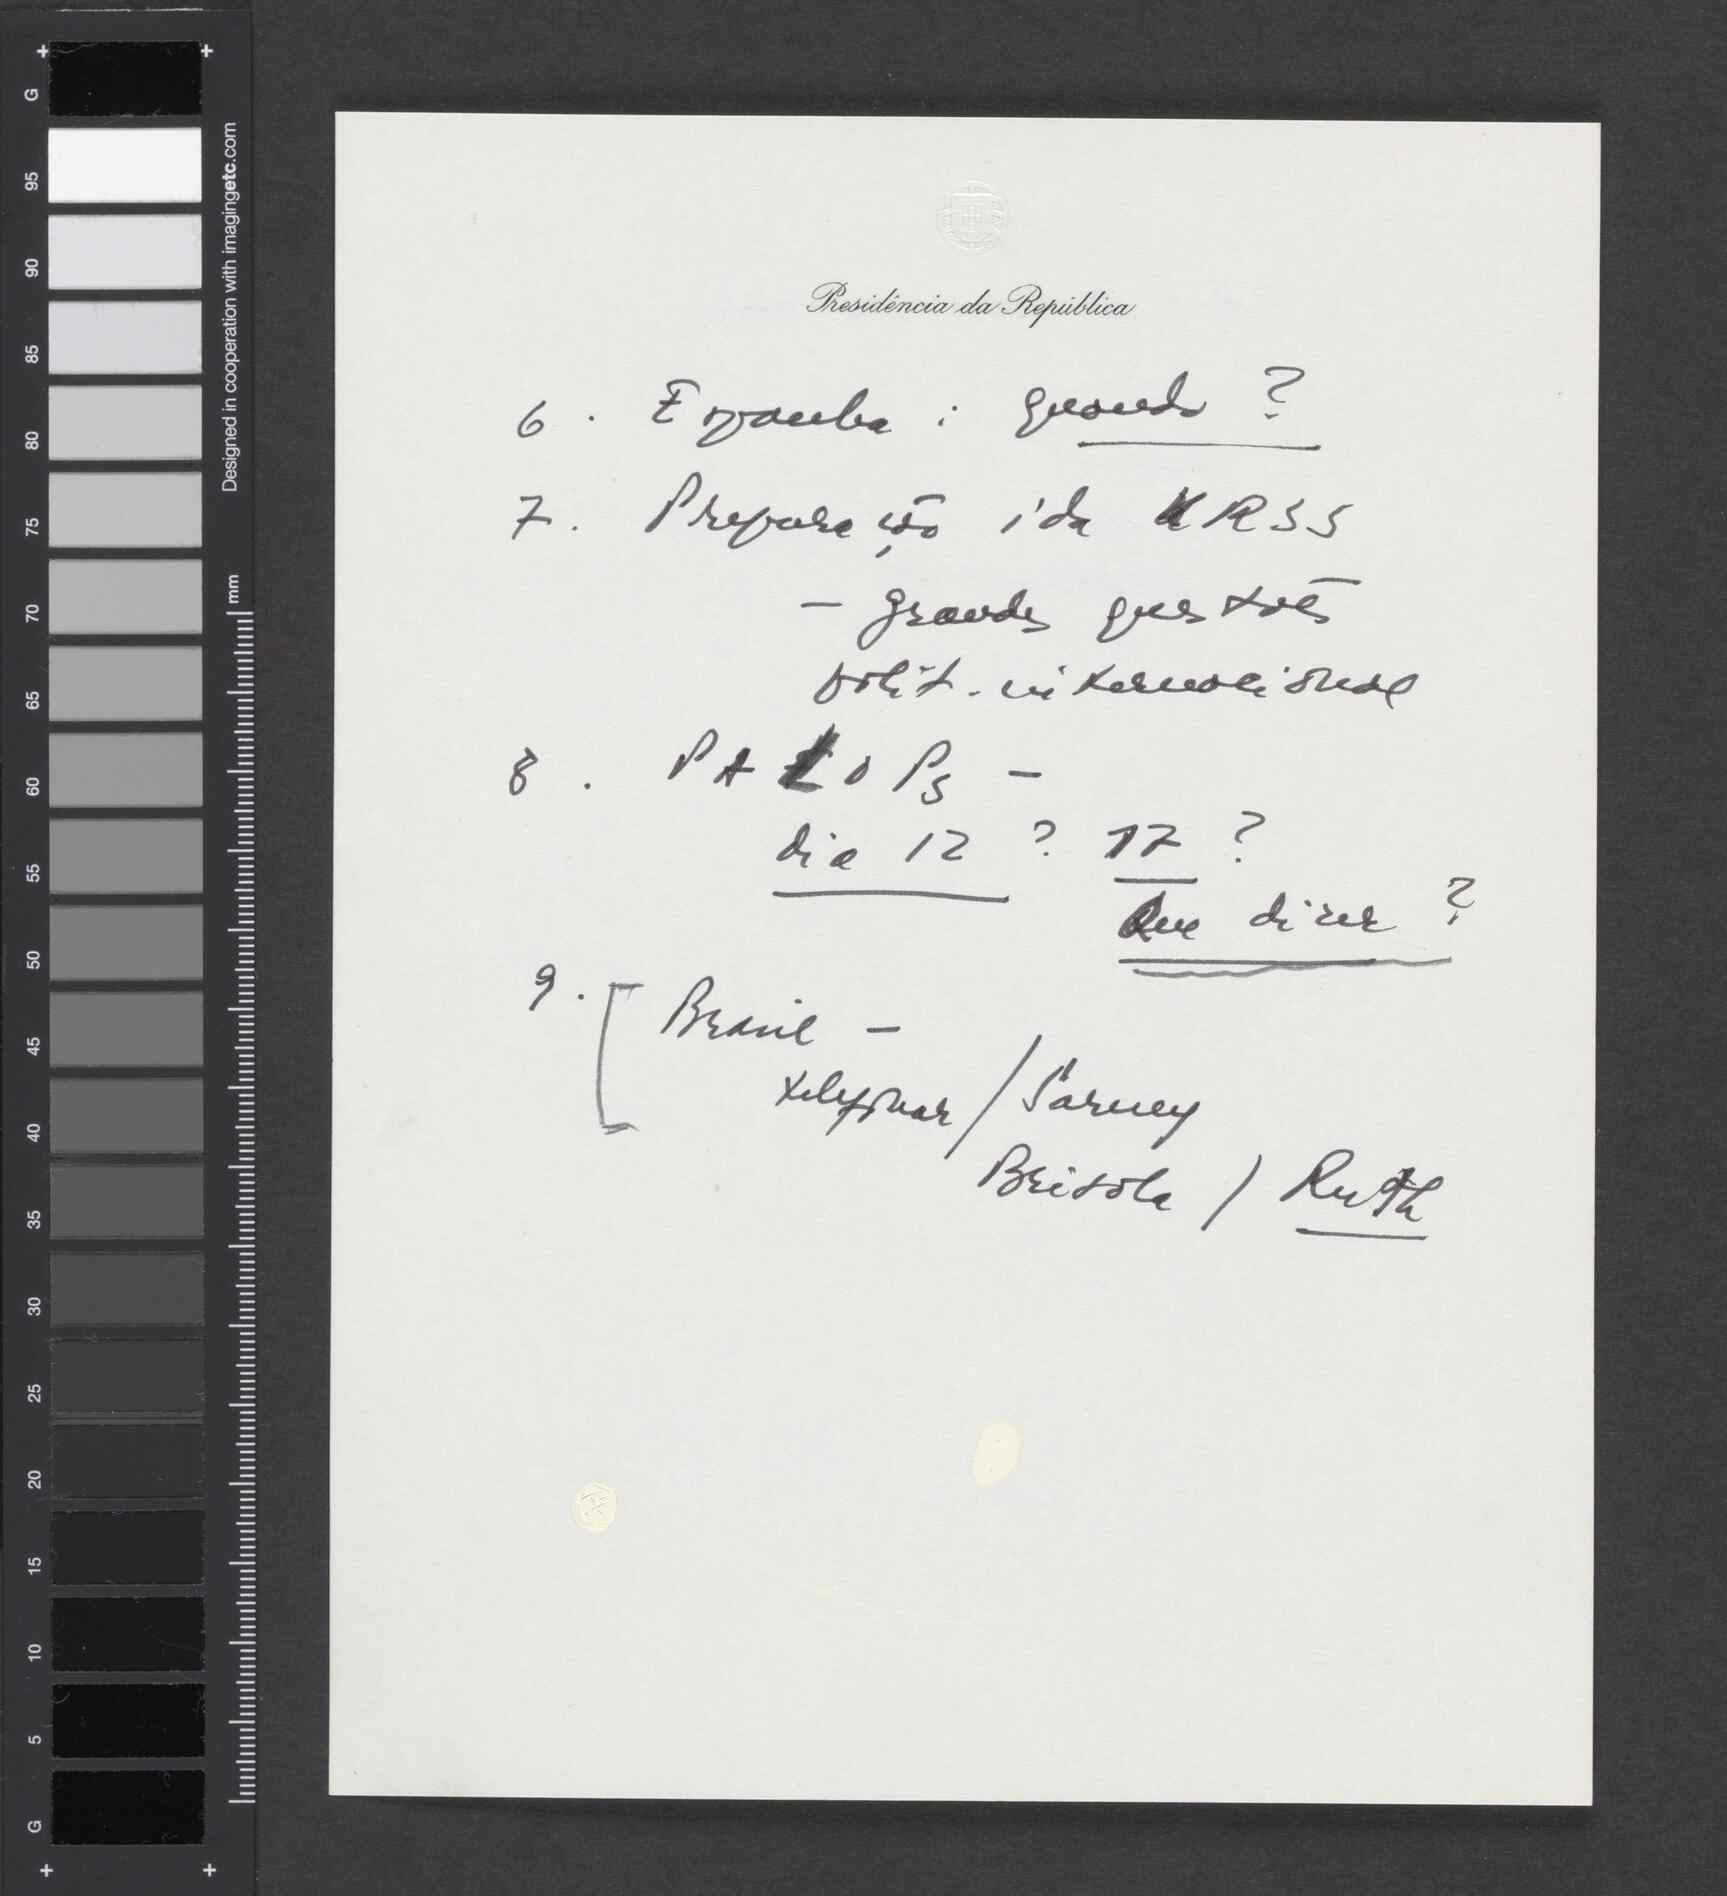 Presidência da República
6. Espanha: quando?
7. Preparação ida URSS
- grandes questões
polit. internacional
8. PALOPs -
dia 12? 17?
Que dizer?
9. [Brasil -
telefonar / Sarney
Brizola / Ruth
G
95
90
85
80
75
70
65
60
55
50
45
40
35
30
25
20
15
10
5
G
Designed in cooperation with imagingetc.com
mm